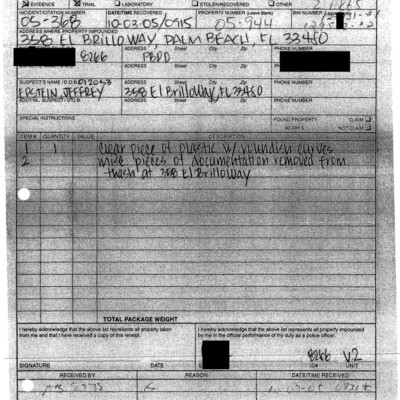 EVIDENCE TRIAL LABORATORY STOLEN/RECOVERED OTHER
INCIDENT/CITATION NUMBER DATE/TIME RECOVERED PROPERTY NUMBER (Leave Blank) BIN NUMBER
05-368 10-03-05/0915 05-944
ADDRESS WHERE PROPERTY IMPOUNDED
358 El Brilloway, PALM BEACH, FL 33480
ADDRESS Street City Zip PHONE NUMBER
8266 PBPD
ADDRESS Street City Zip PHONE NUMBER
SUSPECT'S NAME / D.O.B. 012053 ADDRESS Street City Zip PHONE NUMBER
EPSTEIN, JEFFREY 358 El Brilloway, FL 33480
ADDRESS Street City Zip PHONE NUMBER
SPECIAL INSTRUCTIONS FOUND PROPERTY CLAIM
NOT CLAIM
ITEM # QUANTITY VALUE DESCRIPTION
1 1 clear piece of plastic w/ roundish curves
2 misc pieces of documentation removed from
trash at 358 El Brilloway
TOTAL PACKAGE WEIGHT
I hereby acknowledge that the above list represents all property taken
from me and that I have received a copy of this receipt.
I hereby acknowledge that the above list represents all property impounded
by me in the official performance of my duty as a police officer.
8266 V.2
SIGNATURE DATE ID# UNIT
RECEIVED BY REASON DATE/TIME RECEIVED